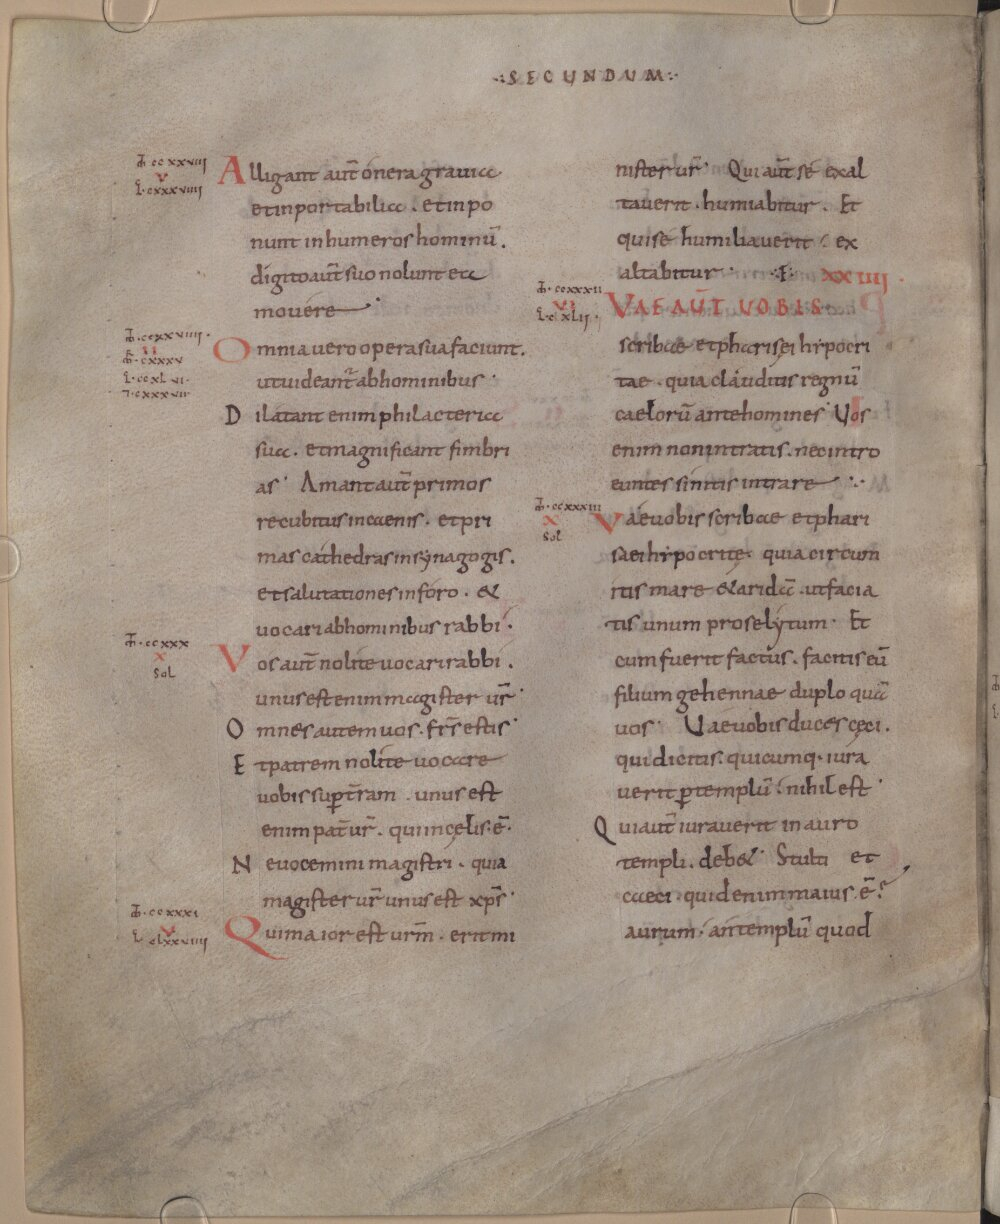 ·:SECUNDUM:·
M̄·ccxxviiii
v
L·cxxxviiii
Alligant aut̄ onera gravia
et inportabilia . et inpo
nunt inhumeros hominū .
digito aut̄ suo nolunt ea
movere
M̄·ccxxviiii·
ii
M̄·cxxxv
L·ccxlvi·
I·cxxxvii
Omnia vero opera sua faciunt .
ut videant̄ abhominibus ·
Dilatant enim philacteria
sua . et magnificant fimbri
as · Amant aut̄ primos
recubitus incaenis . et pri
mas cathedras insynagogis .
et salutationes inforo . &
vocari abhominibus rabbi .
M̄·ccxxx
x
Sol
Vos aut̄ nolite vocari rabbi .
unus est enim magister ur̄ ·
Omnes autem vos . fr̄s estis ·
Et patrem nolite vocare
vobis sup̱ t̄ram . unus est
enim pat̄ ur̄ . qui incęlis · ē ·
Ne vocemini magistri . quia
magister ur̄ unus est xp̄s ·
M̄·ccxxxi
v
L·clxxviiii
Qui maior est urm̄ . erit mi
nister ur̄ · Qui aut̄ se exal
taverit . humiabitur . Et
qui se humiliaverit . ex
altabitur · xxiiii .
M̄·ccxxxii
VAE AUT̄ VOBIS
scribae et pharisęi hypocri
tae . quia clauditis regnū
caelorū ante homines · Vos
enim non intratis . nec intro
euntes sinitis intrare
M̄·ccxxxiii
x
Sol
Vae vobis scribae et phari
saei hypocritę . quia circum
itis mare & aridā . ut facia
tis unum proselytum · Et
cum fuerit factus . facitis eū
filium gehennae duplo quā
vos · Vae vobis duces cęci .
qui dicitis . quicumq· iura
verit p̱ templū . nihil est ·
Qui aut̄ iuraverit in auro
templi . deb& · Stulti et
caeci . quid enim maius · ē ?
aurum . an templū quod